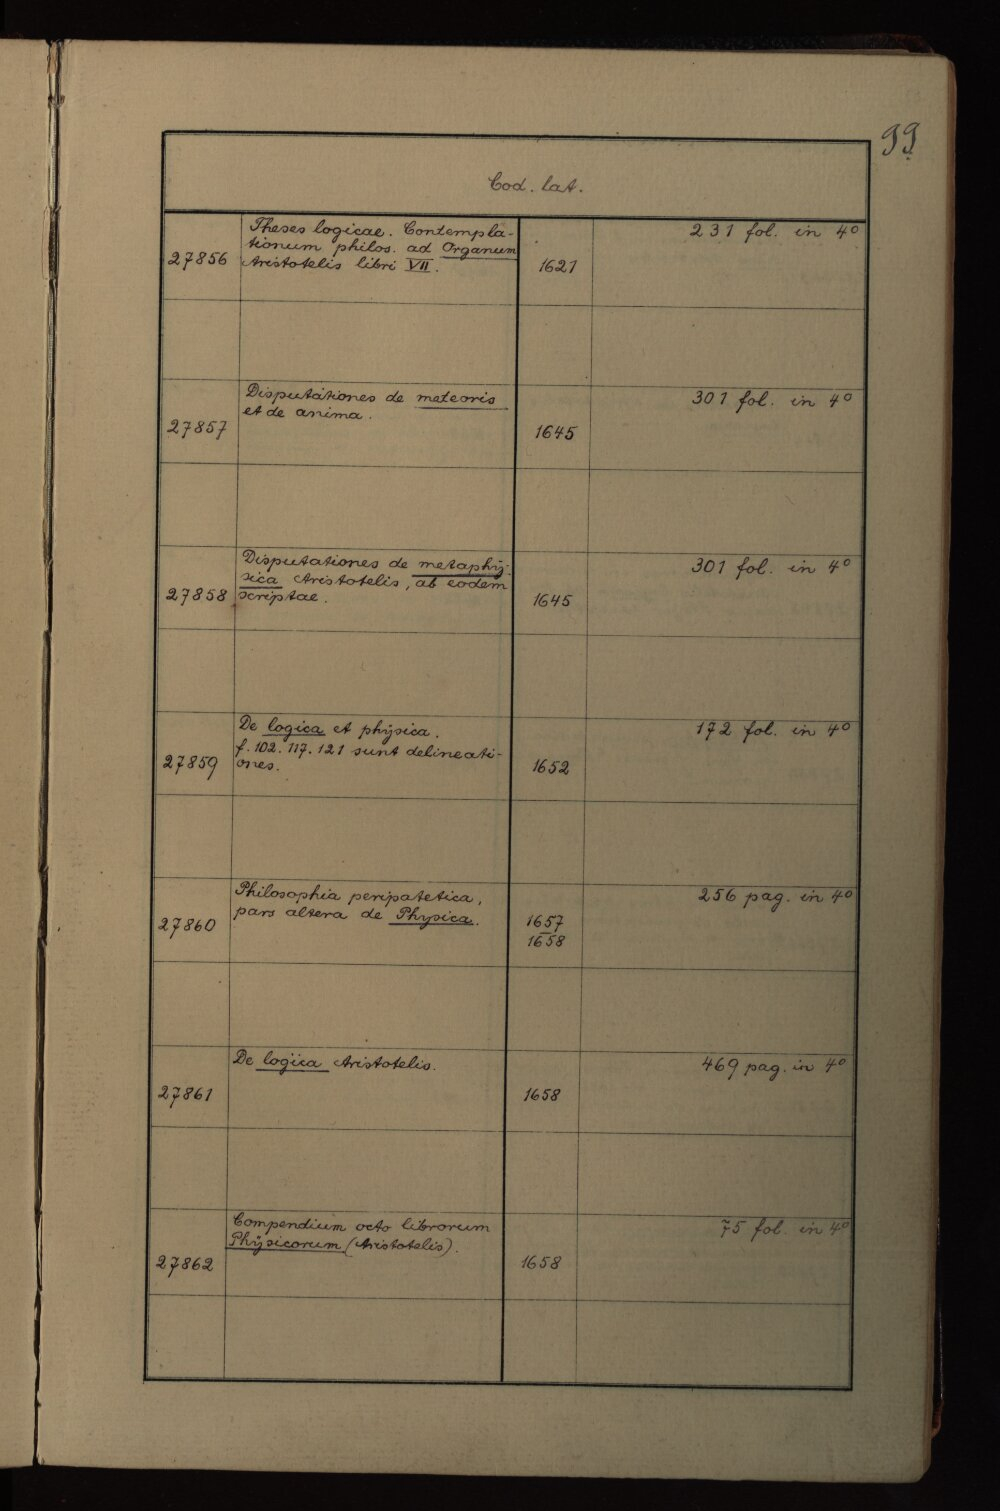 99
Cod. lat.
Theses logicae. Contempla-
tionum philos. ad Organum
27856 Aristotelis libri VII. 1621 231 fol. in 4º
Disputationes de meteoris
et de anima.
27857 1645 301 fol. in 4º
Disputationes de metaphÿ-
sica Aristotelis, ab eodem
27858 scriptae. 1645 301 fol. in 4º
De logica et phÿsica.
f. 102. 117. 121 sunt delineati-
27859 ones. 1652 172 fol. in 4º
Philosophia peripatetica,
pars altera de Physica.
27860 1657
1658 256 pag. in 4º
De logica Aristotelis.
27861 1658 469 pag. in 4º
Compendium octo librorum
Phÿsicorum (Aristotelis).
27862 1658 75 fol. in 4º